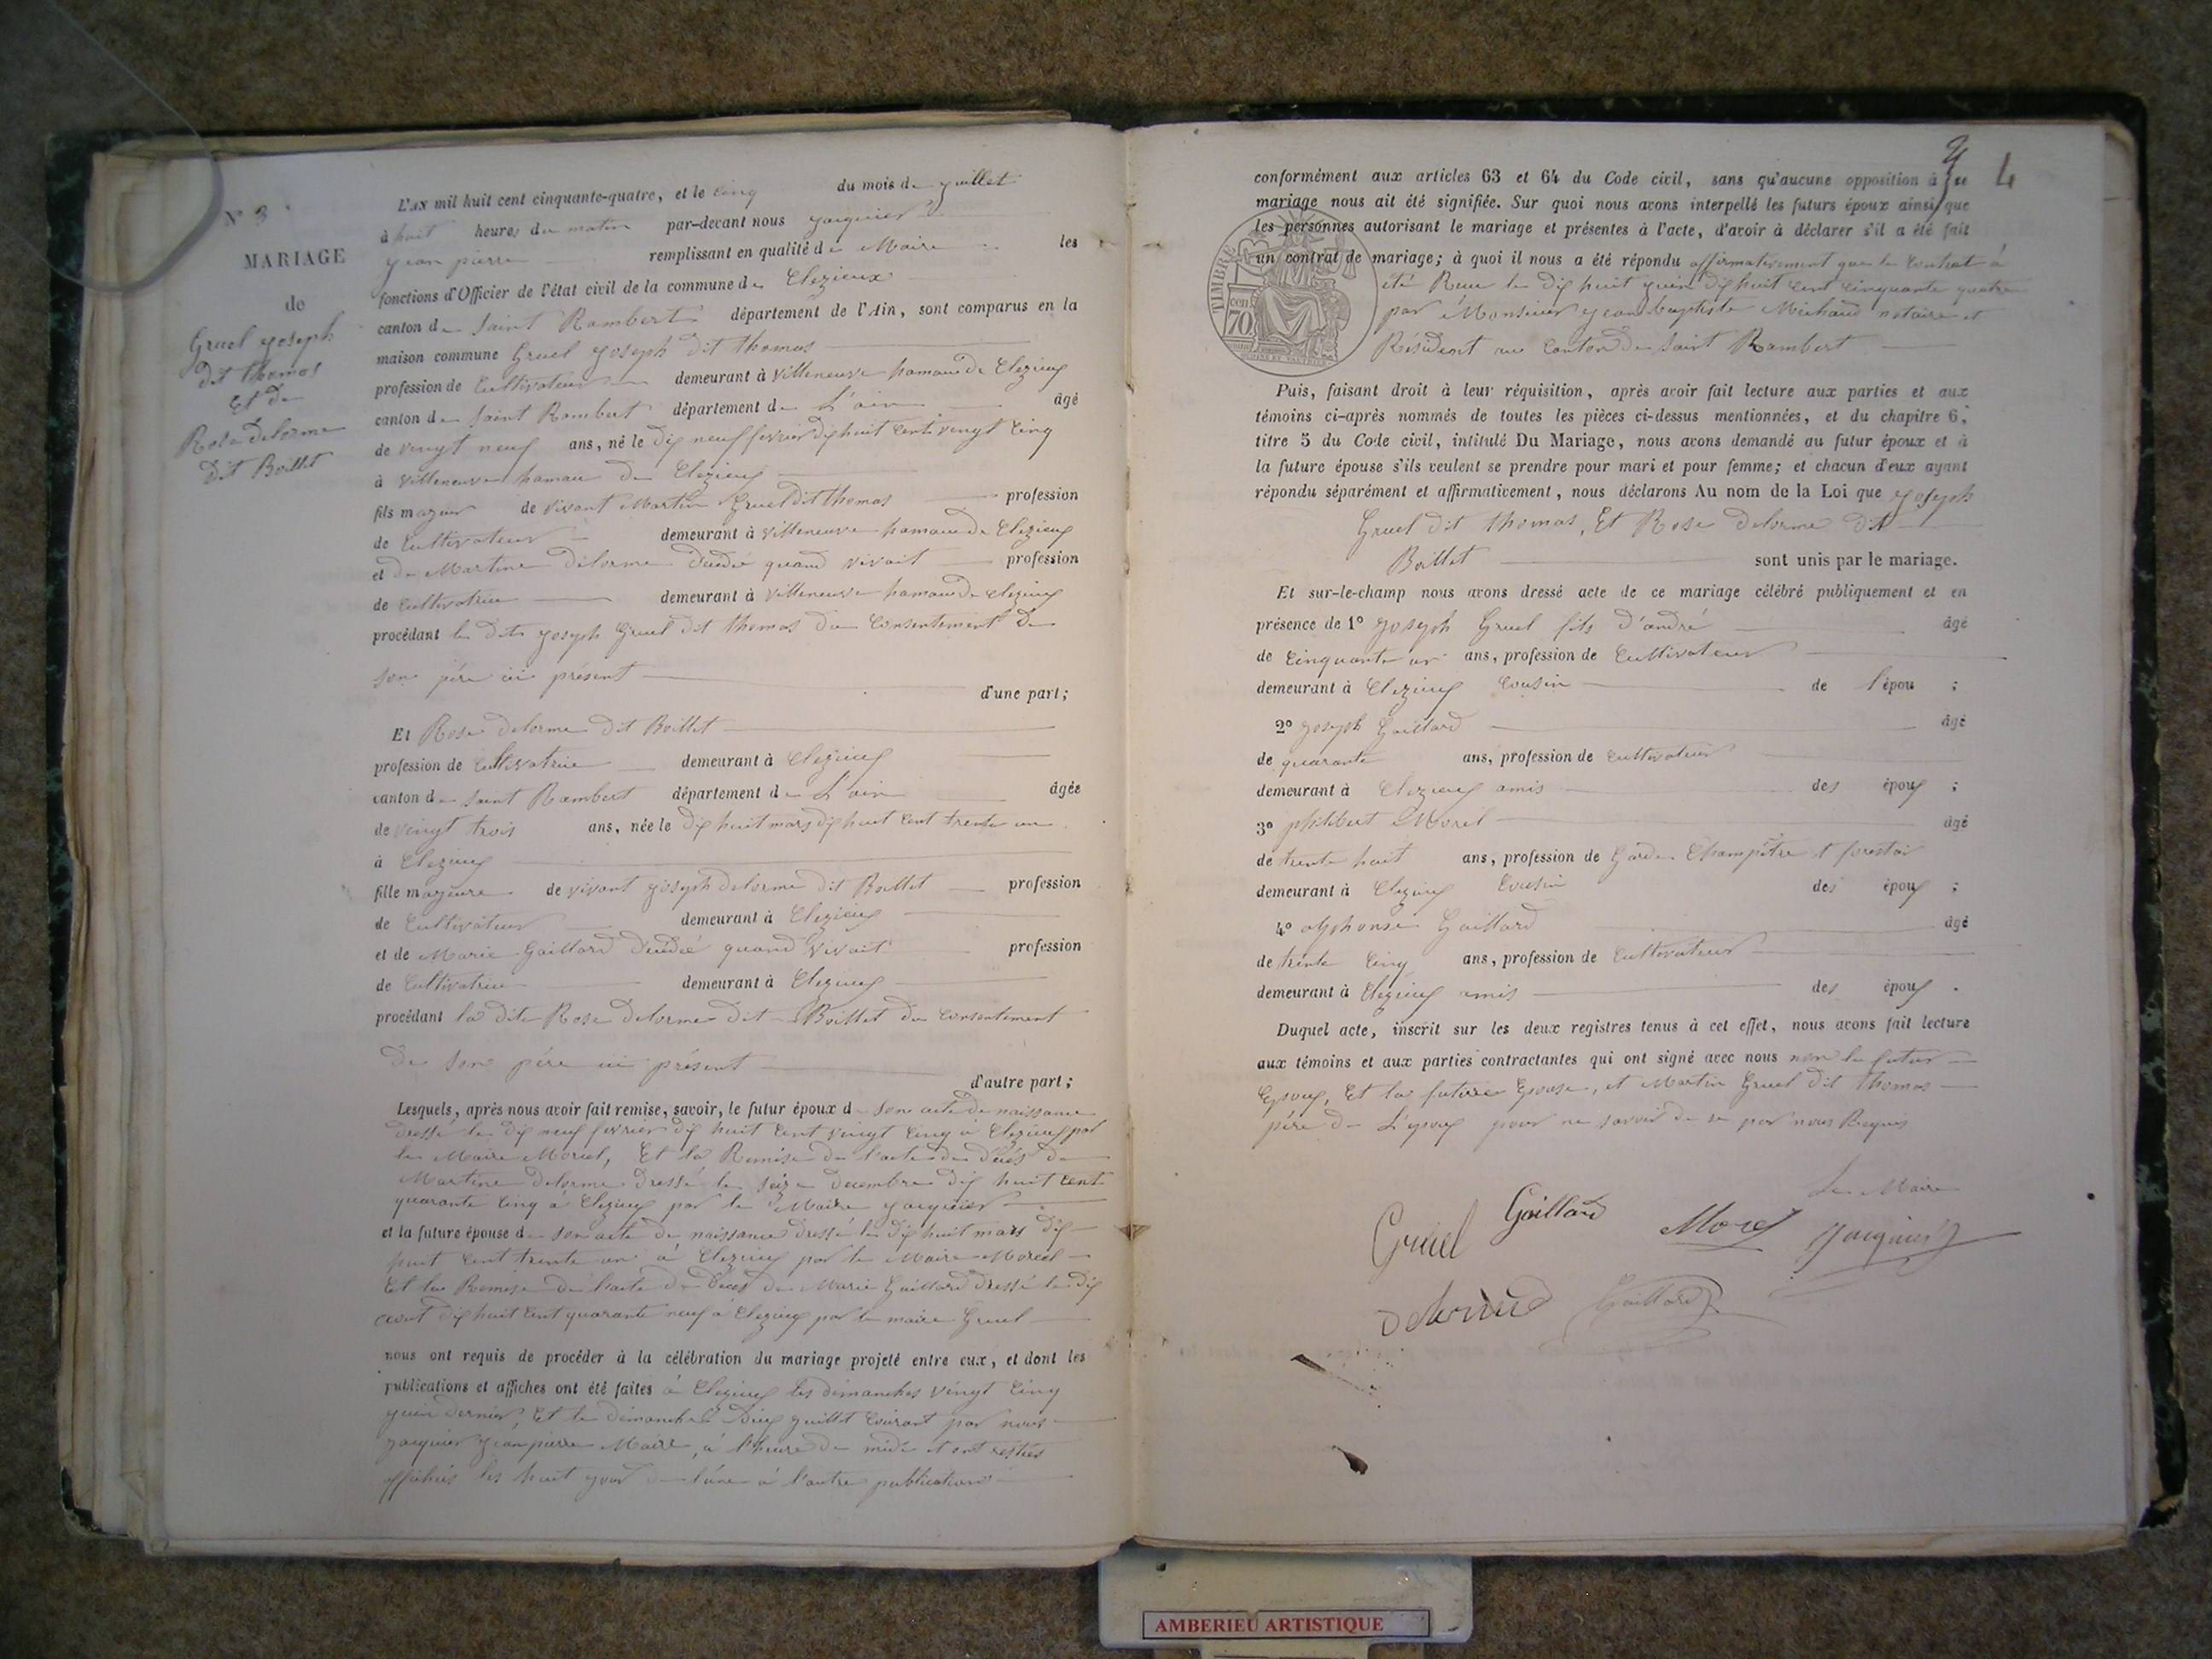 N° 3
MARIAGE
de
Gruel joseph
dit thomas
Et de
Rose delorme
dit Boillet
L'AN mil huit cent cinquante-quatre, et le cinq du mois de juillet
à huit heures du matin par-devant nous jarguier
jean pierre remplissant en qualité de Maire les
fonctions d'Officier de l'état civil de la commune de Clezieux
canton de Saint Rambert département de l'Ain, sont comparus en la
maison commune Gruel joseph dit thomas
profession de Cultivateur demeurant à Villeneuve hamau de Clezieux
canton de Saint Rambert département de L'ain âgé
de vingt neuf ans, né le dix neuf fevrier dix huit cent vingt cinq
à Villeneuve hamau de Clezieux
fils majeur de vivant Martin Gruel dit thomas profession
de Cultivateur demeurant à Villeneuve hamau de Clezieux
et de Martine delorme décédé quand vivait profession
de Cultivatrice demeurant à Villeneuve hamau de clezieux
procédant le dit joseph Gruel dit thomas du Consentement de
son père ici présent
d'une part;
Et Rose delorme dit Boillet
profession de Cultivatrice demeurant à Clezieux
canton de Saint Rambert département de L'ain âgée
de vingt trois ans, née le dix huit mars dix huit cent trente un
à Clezieux
fille majeure de vivant joseph delorme dit Boillet profession
de Cultivateur demeurant à Clezieux
et de Marie Gaillard décédée quand vivait profession
de Cultivatrice demeurant à Clezieux
procédant la dite Rose delorme dit Boillet du consentement
de son père ici présent
d'autre part;
Lesquels, après nous avoir fait remise, savoir, le futur époux de son acte de naissance
dressé le dix neuf fevrier dix huit cent vingt cinq à Clezieux par
le Maire Morel, Et la Remise de l'acte de décès de
Martine delorme dressé le seize decembre dix huit cent
quarante cinq à Clezieux par le Maire jarguier
et la future épouse de son acte de naissance dressé le dix huit mars dix
huit cent trente un à Clezieux par le Maire Morel
Et la Remise de l'acte de décès de Marie Gaillard dressé le dix
aout dix huit cent quarante neuf à Clezieux par le maire Gruel
nous ont requis de procéder à la célébration du mariage projeté entre eux, et dont les
publications et affiches ont été faites à Clezieux les dimanches vingt cinq
juin dernier, Et le dimanche deux juillet courant par nous
jarguier jean pierre Maire, à l'heure de midi et ont restées
affichés les huit jour de l'une à l'autre publication
4
conformément aux articles 63 et 64 du Code civil, sans qu'aucune opposition à ce
mariage nous ait été signifiée. Sur quoi nous avons interpellé les futurs époux ainsi que
les personnes autorisant le mariage et présentes à l'acte, d'avoir à déclarer s'il a été fait
un contrat de mariage; à quoi il nous a été répondu affirmativement que le Contrat à
été Reçu le dix huit juin dix huit cent cinquante quatre
par Monsieur jean baptiste Michaud notaire et
Résident au Canton de Saint Rambert
TIMBRE
cen
70
Puis, faisant droit à leur réquisition, après avoir fait lecture aux parties et aux
témoins ci-après nommés de toutes les pièces ci-dessus mentionnées, et du chapitre 6,
titre 5 du Code civil, intitulé Du Mariage, nous avons demandé au futur époux et à
la future épouse s'ils veulent se prendre pour mari et pour femme; et chacun d'eux ayant
répondu séparément et affirmativement, nous déclarons Au nom de la Loi que joseph
Gruel dit thomas, Et Rose delorme dit
Boillet sont unis par le mariage.
Et sur-le-champ nous avons dressé acte de ce mariage célébré publiquement et en
présence de 1° joseph Gruel fils d'andré âgé
de Cinquante un ans, profession de Cultivateur
demeurant à Clezieux Cousin de l'épou ;
2° joseph Gaillard âgé
de quarante ans, profession de Cultivateur
demeurant à Clezieux amis des époux ;
3° philibert Morel âgé
de trente huit ans, profession de Garde Champêtre et forestier
demeurant à Clezieux Cousin des époux ;
4° alphonse Gaillard âgé
de trente Cinq ans, profession de Cultivateur
demeurant à Clezieux amis des époux .
Duquel acte, inscrit sur les deux registres tenus à cet effet, nous avons fait lecture
aux témoins et aux parties contractantes qui ont signé avec nous non le futur
Epoux, Et la future Epouse, et Martin Gruel dit thomas
père de L'epoux pour ne savoir de ce par nous Requis
Le Maire
Gruel Gaillard Morel jarguier
delorme Gaillard
AMBERIEU ARTISTIQUE